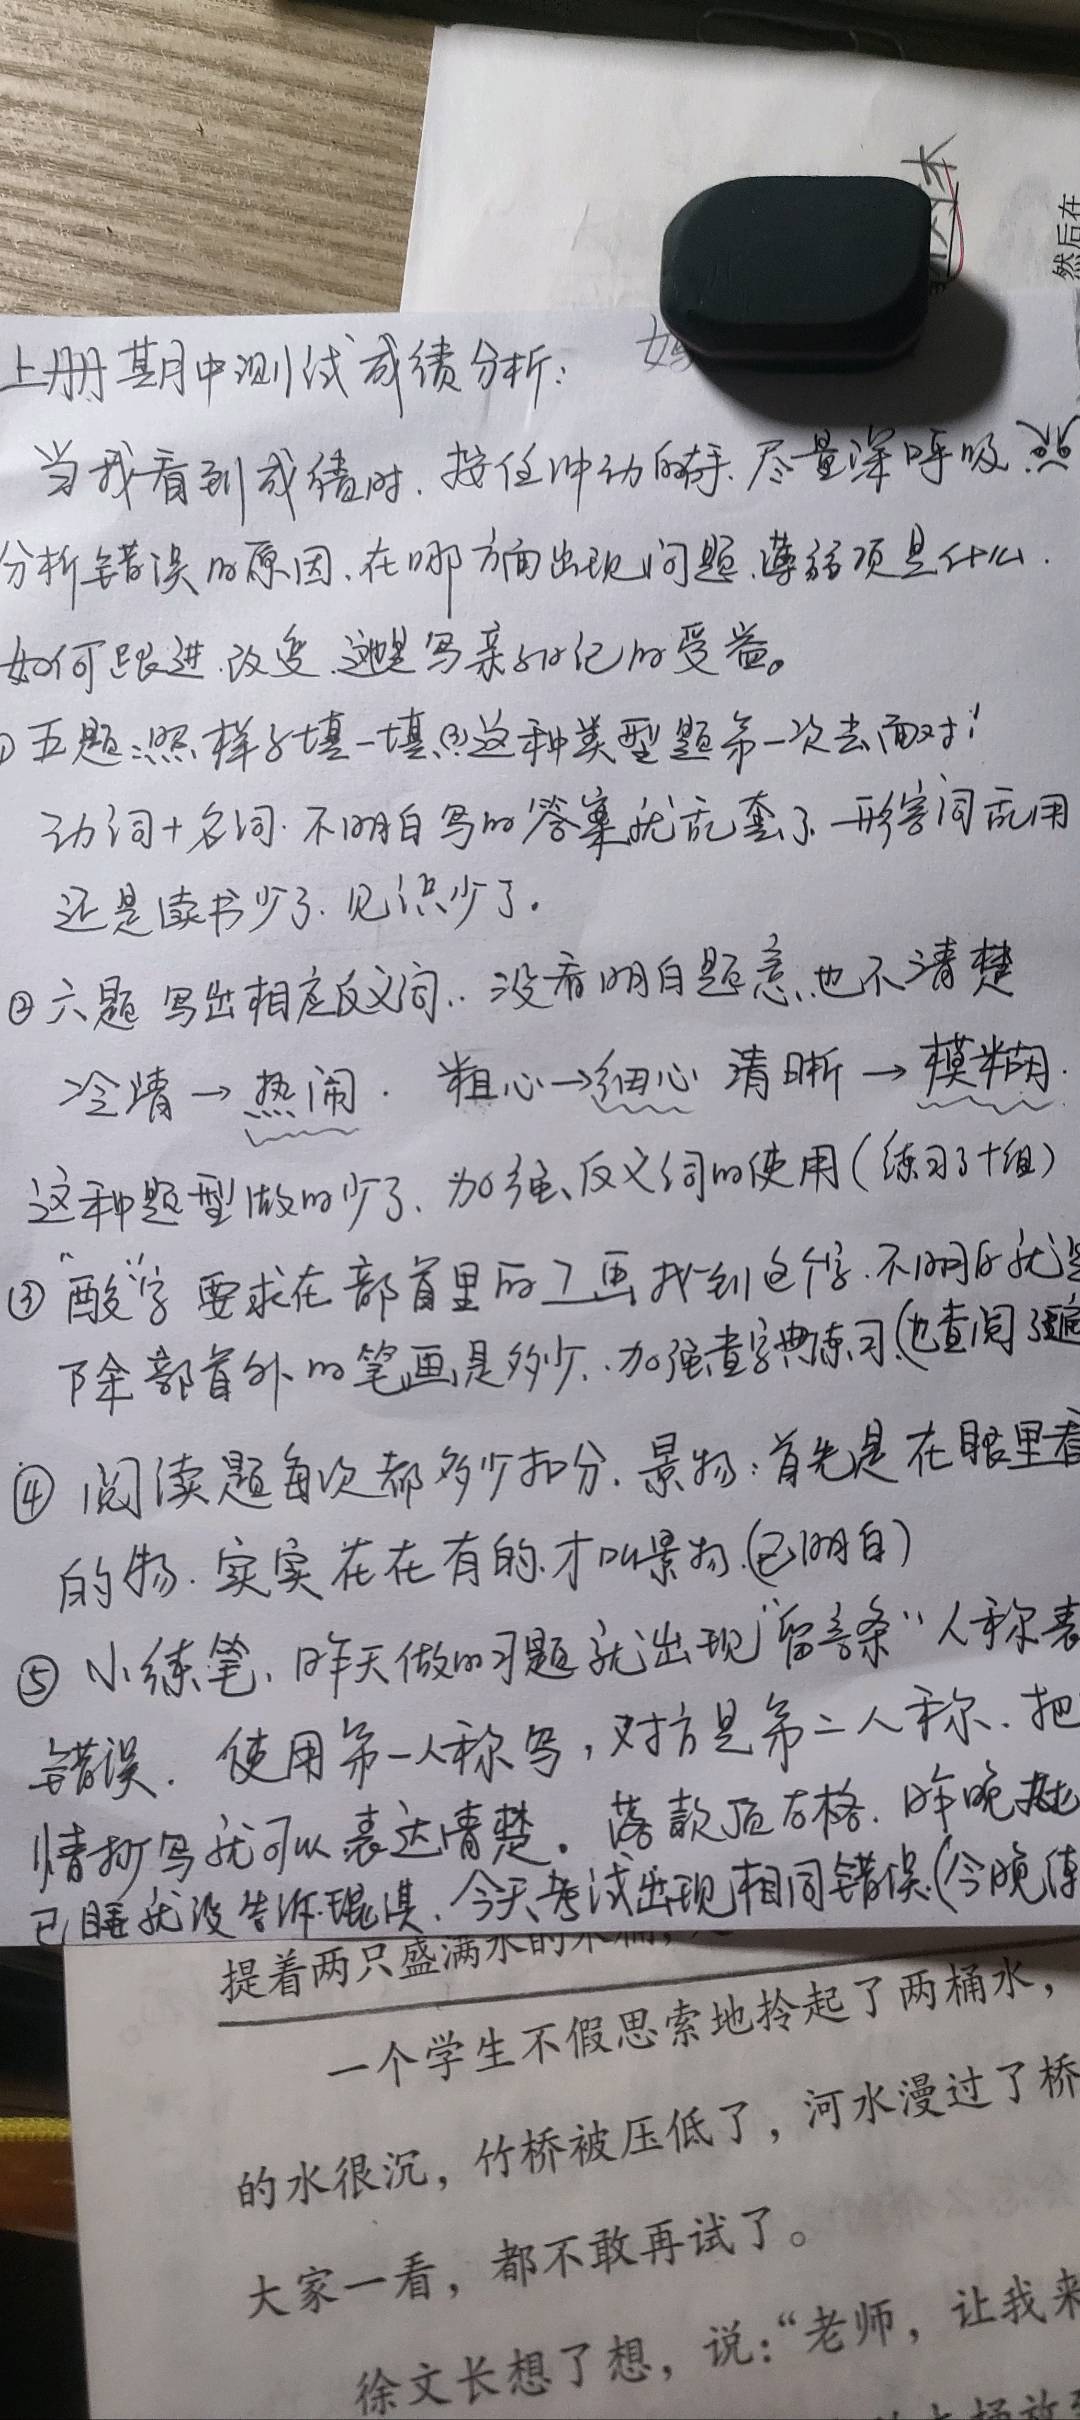 然后在
上册期中测试成绩分析:
当我看到成绩时.按住冲动的手.尽量深呼吸.
分析错误的原因.在哪方面出现问题.薄弱项是什么.
如何跟进.改变.这也是写亲子日记的受益。
①五题:照样子填一填.这种类型题第一次去面对!
动词+名词.不明白写的答案就乱套了.形容词乱用
还是读书少了.见识少了.
②六题 写出相应反义词..没看明白题意.也不清楚
冷清→热闹. 粗心→细心 清晰→模糊.
这种题型做的少了.加强反义词的使用(练习了十组)
③"酸"字 要求在部首里的7画找到这个字.不明白就是
除部首外的笔画是多少.加强查字典练习.(也查阅了
④ 阅读题每次都多少扣分.景物:首先是在眼里看
的物.实实在在有的.才叫景物.(已明白)
⑤ 小练笔.昨天做的习题就出现"留言条"人称表
错误. 使用第一人称写,对方是第二人称.把
情抒写就可以表达清楚. 落款顶右格.昨晚
已睡就没告诉.今天考试出现相同错误.(今晚
提着两只盛满水的水桶,
一个学生不假思索地拎起了两桶水,
的水很沉,竹桥被压低了,河水漫过了桥
大家一看,都不敢再试了。
徐文长想了想,说:“老师,让我来